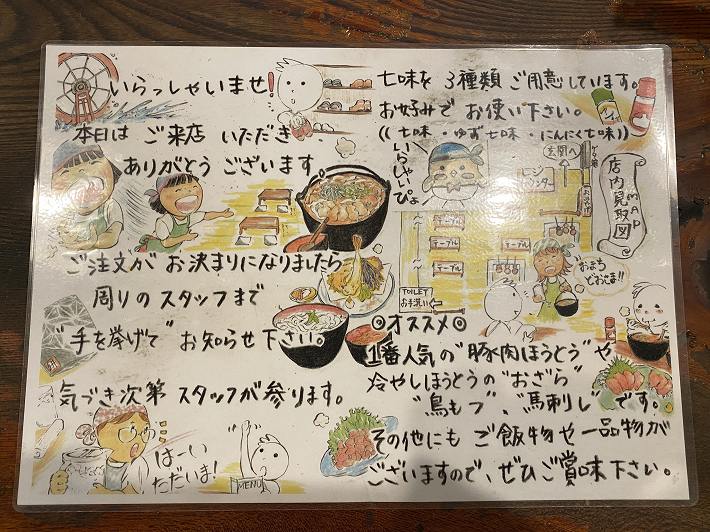 いらっしゃいませ!
本日は ご来店 いただき
ありがとう ございます。
ご注文が お決まりになりましたら
周りのスタッフまで
"手を挙げて" お知らせ下さい。
気づき次第 スタッフが参ります。
はーい
ただいま!
MENU
七味を 3種類 ご用意しています。
お好みで お使い下さい。
((七味・ゆず七味・にんにく七味))
いらっしゃいぴょ
玄関へ
ゲタ箱
レジ
カウンター
お座敷
店内見取図
MAP
テーブル
テーブル
テーブル
テーブル
TOILET
お手洗い
おまちどおさま!!
◎オススメ◎
1番人気の"豚肉ほうとう"や
冷やしほうとうの"おざら"
"鳥もつ"、"馬刺し"です。
その他にも ご飯物や一品物が
ございますので、ぜひご賞味下さい。